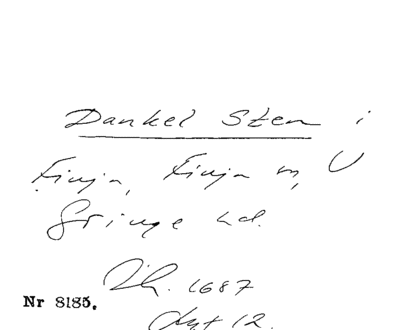 Dankel Sten i
Finja, Finja sn, V
Göinge hd.
Jb. 1687
Nr 8185.
12.